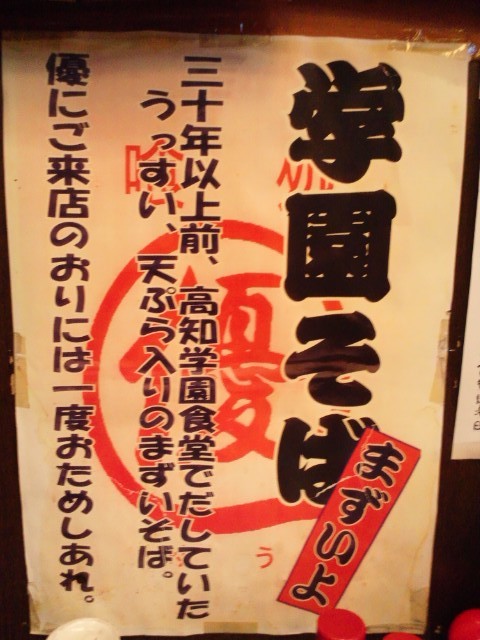 学園そば
まずいよ
三十年以上前、高知学園食堂でだしていた
うっすい、天ぷら入りのまずいそば。
優にご来店のおりには一度おためしあれ。
優
う